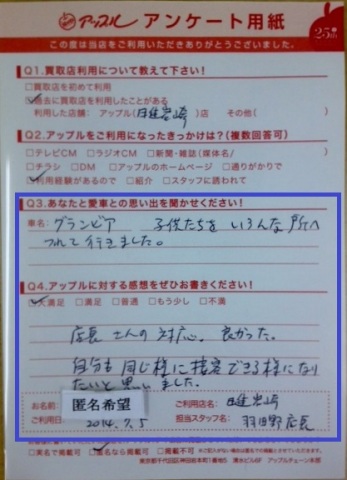 アップル アンケート用紙
25th
この度は当店をご利用いただきありがとうございました。
Q1.買取店利用について教えて下さい!
□買取店を初めて利用
☑過去に買取店を利用したことがある
利用した店舗: アップル( )店 その他( )
Q2.アップルをご利用になったきっかけは?(複数回答可)
□テレビCM □ラジオCM □新聞・雑誌(媒体名/ )
□チラシ □DM □アップルのホームページ □通りがかりで
☑利用経験があるので □紹介 □スタッフに誘われて
Q3.あなたと愛車との思い出を聞かせてください!
車名: グランビア 子供たちを いろんな 所へ
つれて行きました。
Q4.アップルに対する感想をぜひお書きください!
☑大満足 □満足 □普通 □もう少し □不満
店長さんの対応。良かった。
自分も同じ様に接客できる様になり
たいと思いました。
お名前: 匿名希望 ご利用店名:
ご利用日: 2014.7.5 担当スタッフ名: 羽田野店長
□実名で掲載可 ☑匿名なら掲載可 □掲載不可